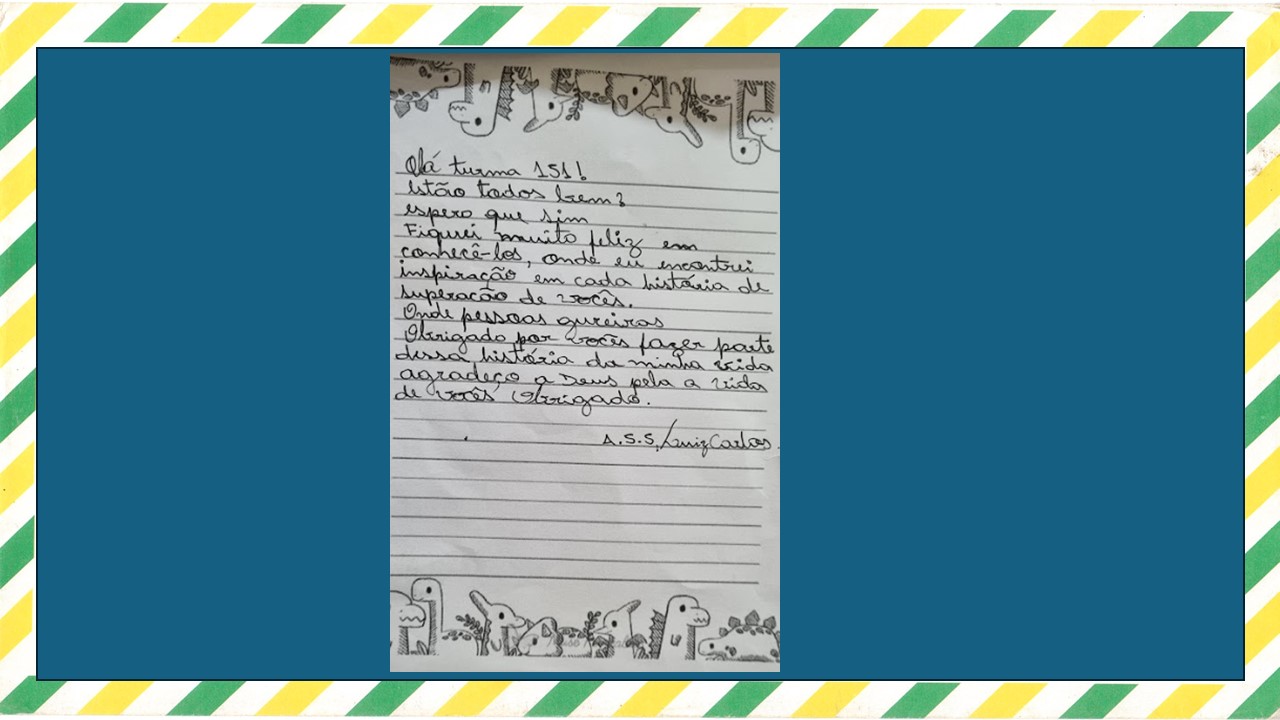 Olá turma 151!
Estão todos bem?
espero que sim
Fiquei muito feliz em
conhecê-los, onde eu encontrei
inspiração em cada história de
superação de vocês.
Onde pessoas gureiras
Obrigado por vocês fazer parte
dessa história da minha vida
agradeço a Deus pela a vida
de vocês Obrigado.
A.S.S. Luiz Carlos